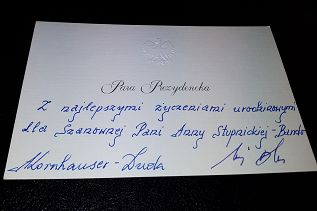 Para Prezydencka
Z najlepszymi życzeniami urodzinowymi
dla Szanownej Pani Anny Stupnickiej-Bando
Kornhauser-Duda